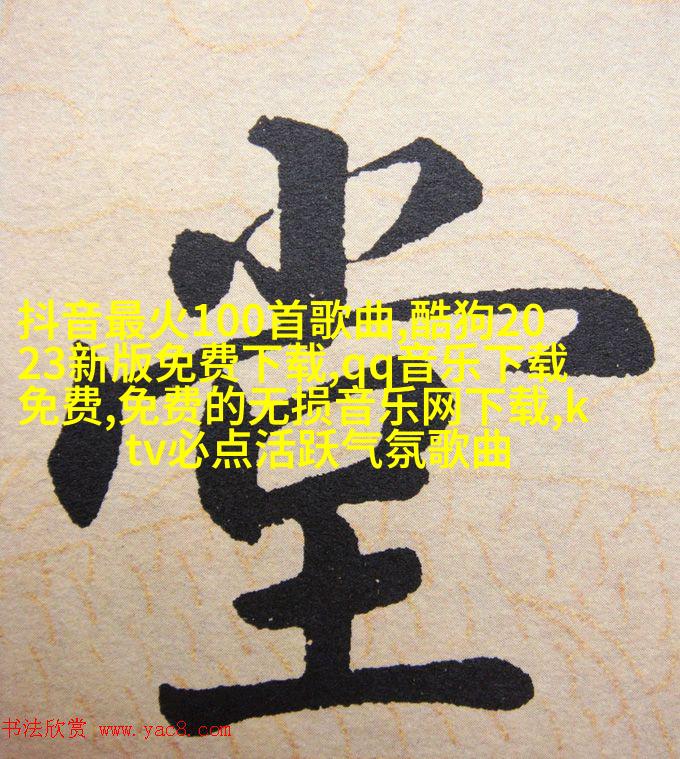 堂
抖音最火100首歌曲,酷狗20
23新版免费下载,qq音乐下载
免费,免费的无损音乐网下载,k
tv必点活跃气氛歌曲
书法欣赏 www.yac8.com